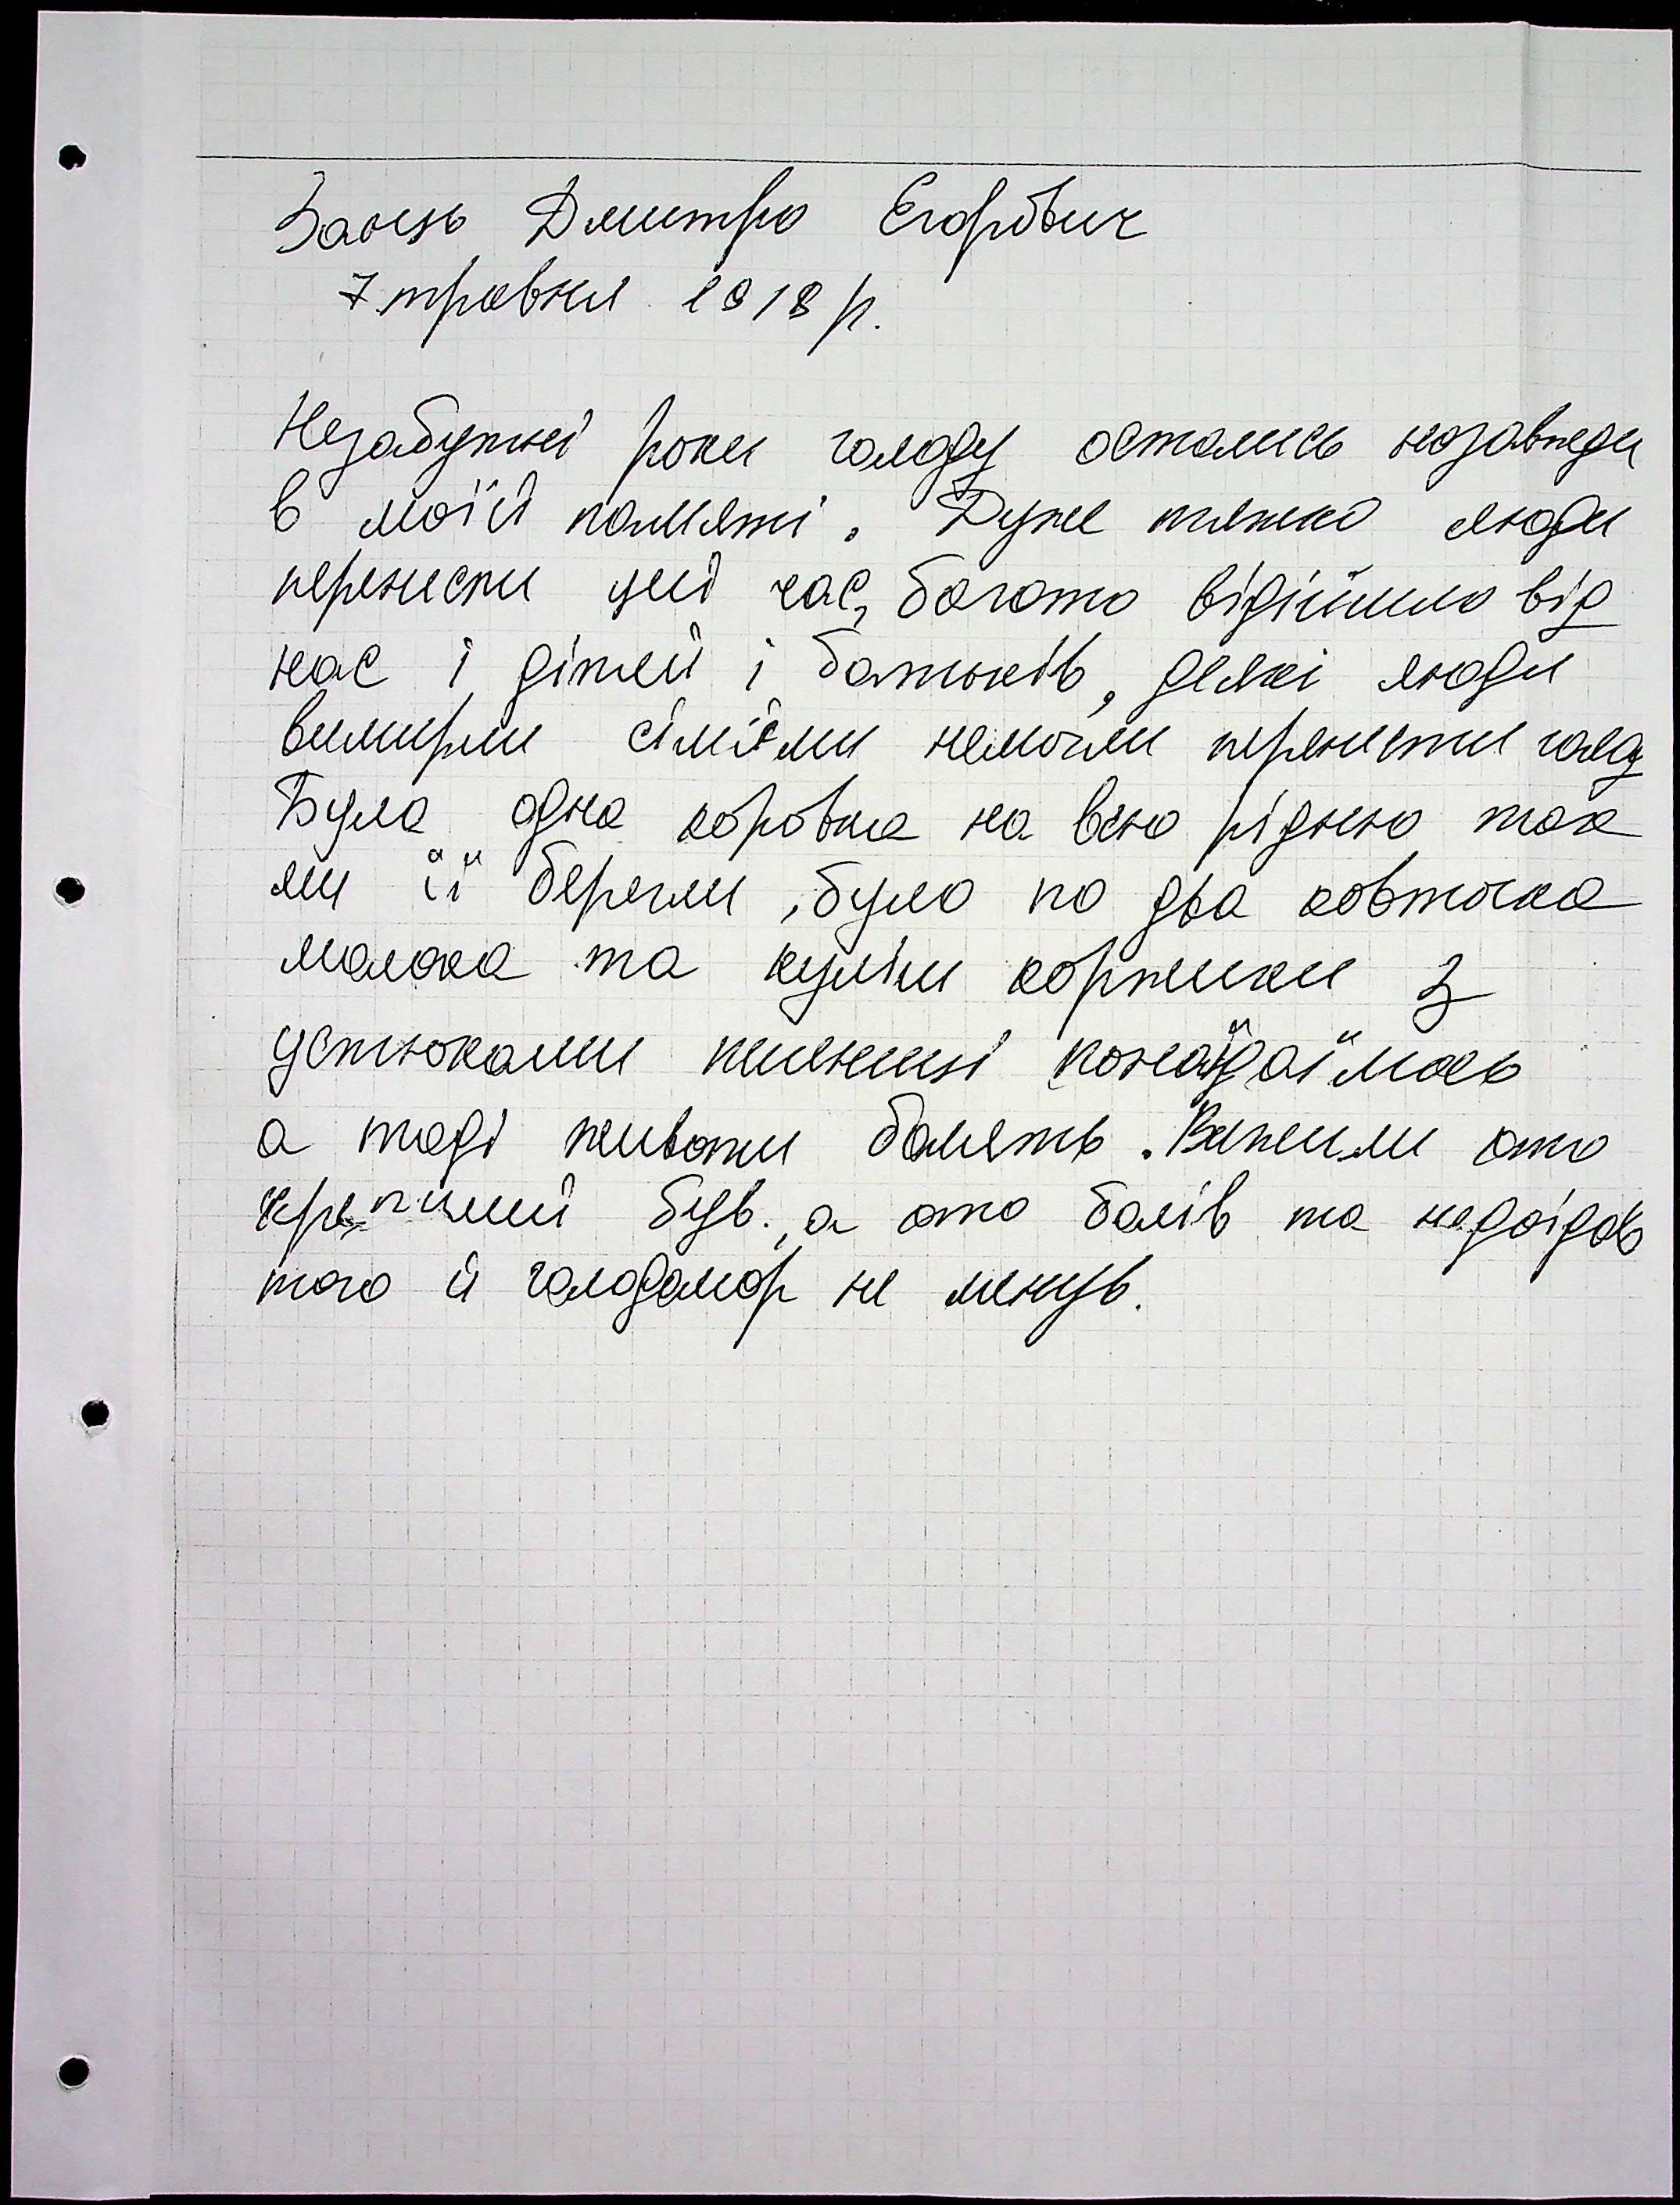 Заєць Дмитро Єгорович
7 травня 1918 р.
Незабутні роки голоду остались назавжди
в моїй памяті. Дуже тяжко люди
перенесли цей час, багато відійшло від
нас і дітей і батьків, деякі люди
вимерли сімїями немогли перенести голод
Була одна коровка на всю рідню так
ми її берегли, було по два ковточка
молока та куліш коржики з
устюками пшениці понаїдаїмось
а тоді животи болять. Вижили ото
крепший був., а ото болів та недоїдав
того й голодомор не менув.